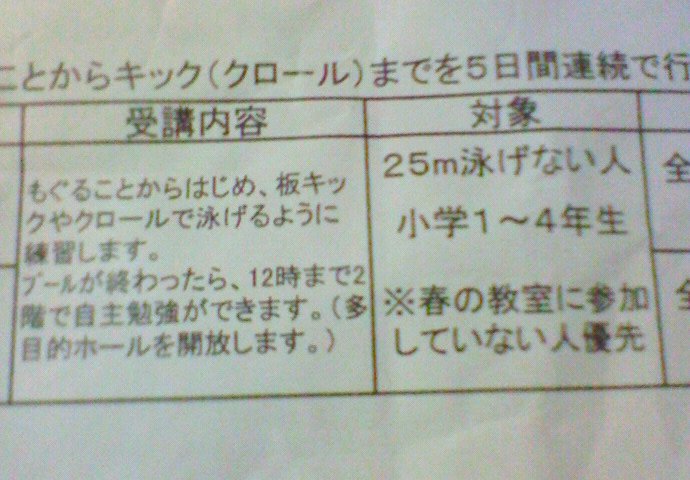 ことからキック(クロール)までを5日間連続で行
受講内容
対象
もぐることからはじめ、板キッ
クやクロールで泳げるように
練習します。
プールが終わったら、12時まで2
階で自主勉強ができます。(多
目的ホールを開放します。)
25m泳げない人
小学1～4年生
※春の教室に参加
していない人優先
全
全